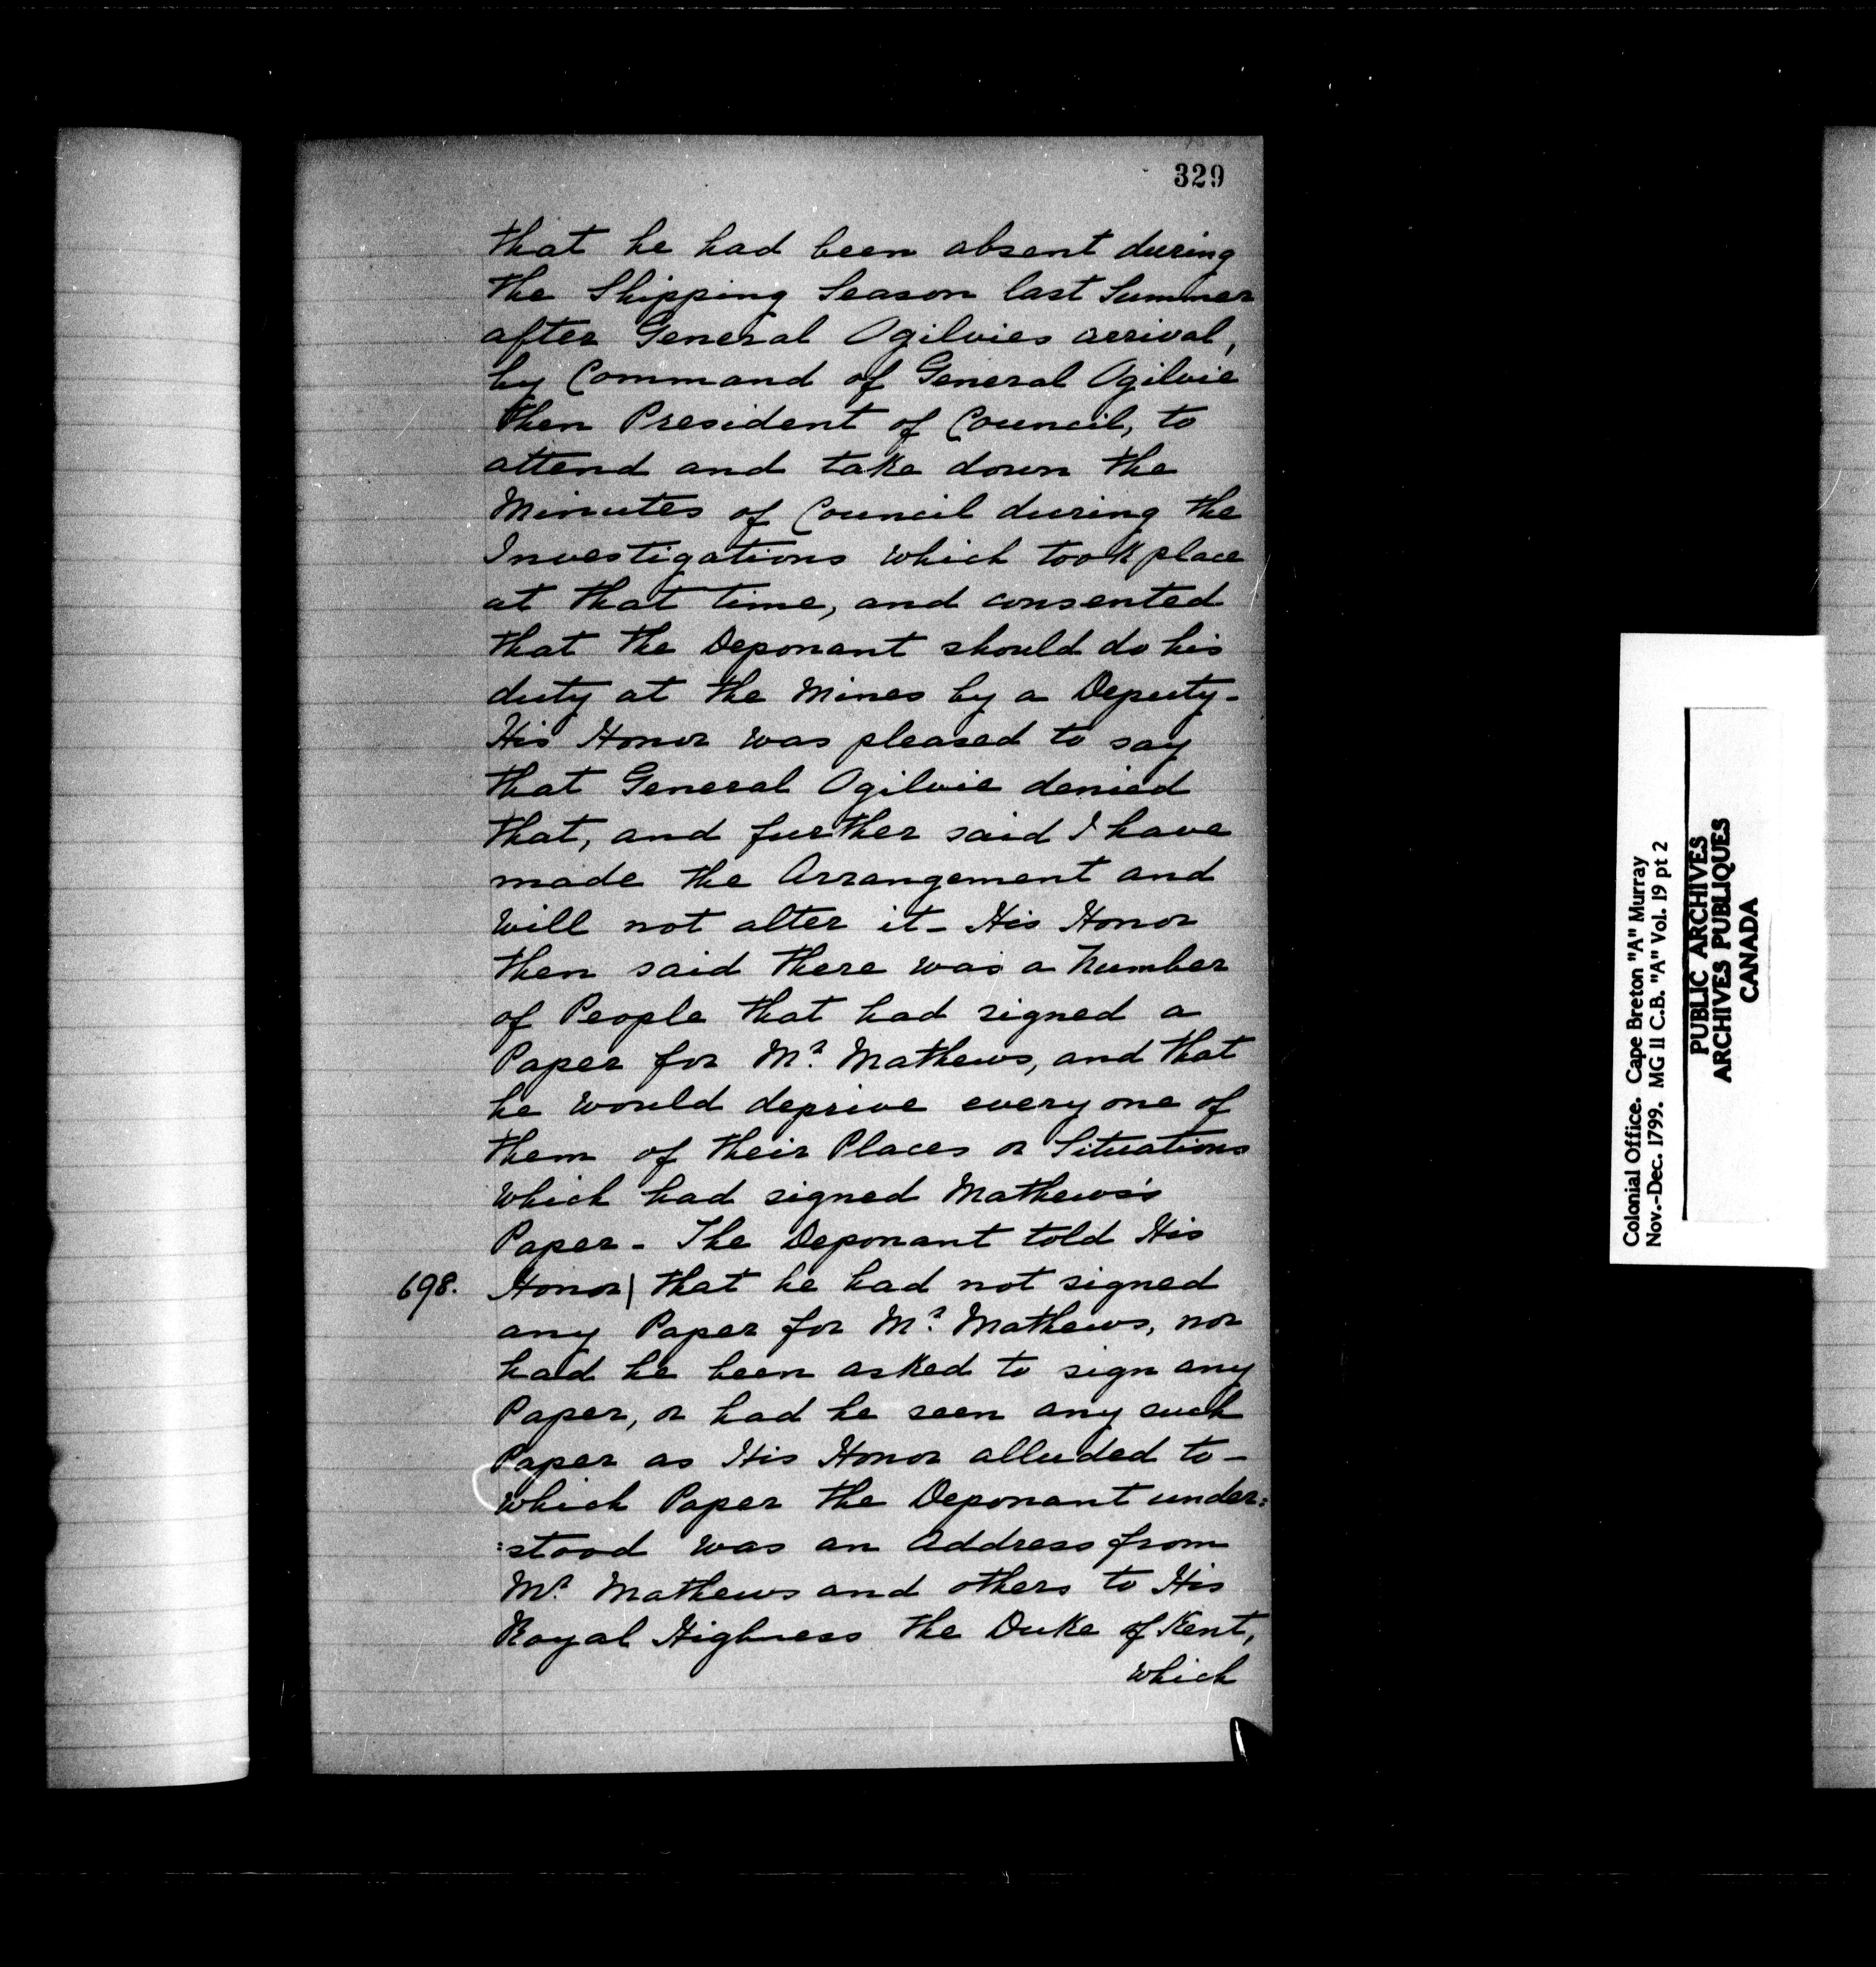 329
that he had been absent during
the Shipping Season last Summer
after General Ogilvies arrival,
by Command of General Ogilvie
then President of Council, to
attend and take down the
Minutes of Council during the
Investigations which took place
at that time, and consented
that the Deponant should do his
duty at the Mines by a Deputy-
His Honor was pleased to say
that General Ogilvie denied
that, and further said I have
made the Arrangement and
will not alter it- His Honor
then said there was a Number
of People that had signed a
Paper for Mr. Mathews, and that
he would deprive every one of
them of their Places or Situations
which had signed Mathews's
Paper- The Deponant told His
698. Honor| that he had not signed
any Paper for Mr. Mathews, nor
had he been asked to sign any
Paper, or had he seen any such
Paper as His Honor alluded to-
which Paper the Deponant under:
:stood was an Address from
Mr. Mathews and others to His
Royal Highness the Duke of Kent,
which
Colonial Office. Cape Breton "A" Murray
Nov.-Dec. 1799. MG 11 C.B. "A" Vol. 19 pt 2
PUBLIC ARCHIVES
ARCHIVES PUBLIQUES
CANADA